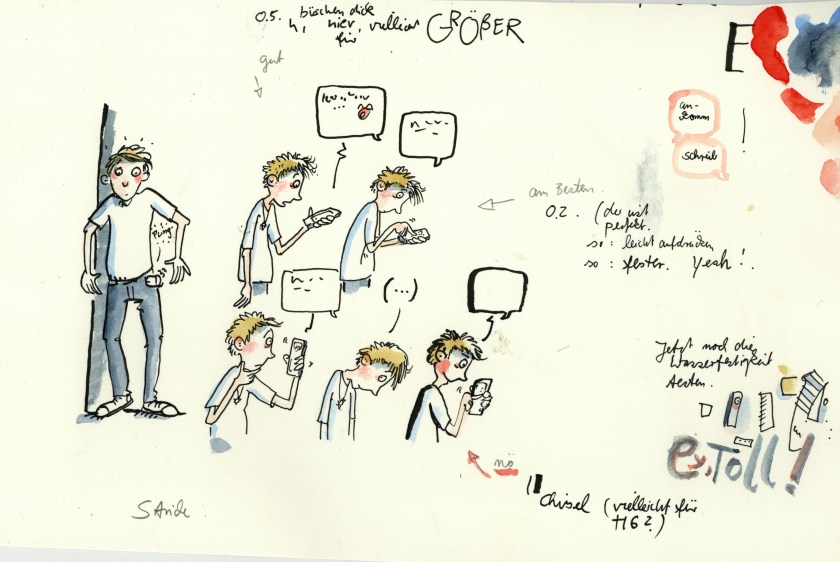 0.5. büschen dick
h, hier, vielleicht
für
GRÖßER
gut
E
an-
komm
!
schreib
am Besten
0.2. (der ist
perfekt.
so : leicht aufdrücken
so : fester. Yeah!
Pling
(...)
Jetzt noch die
Wasserfestigkeit
testen.
ey, Toll!
nö
Chisel (vielleicht für
H6?)